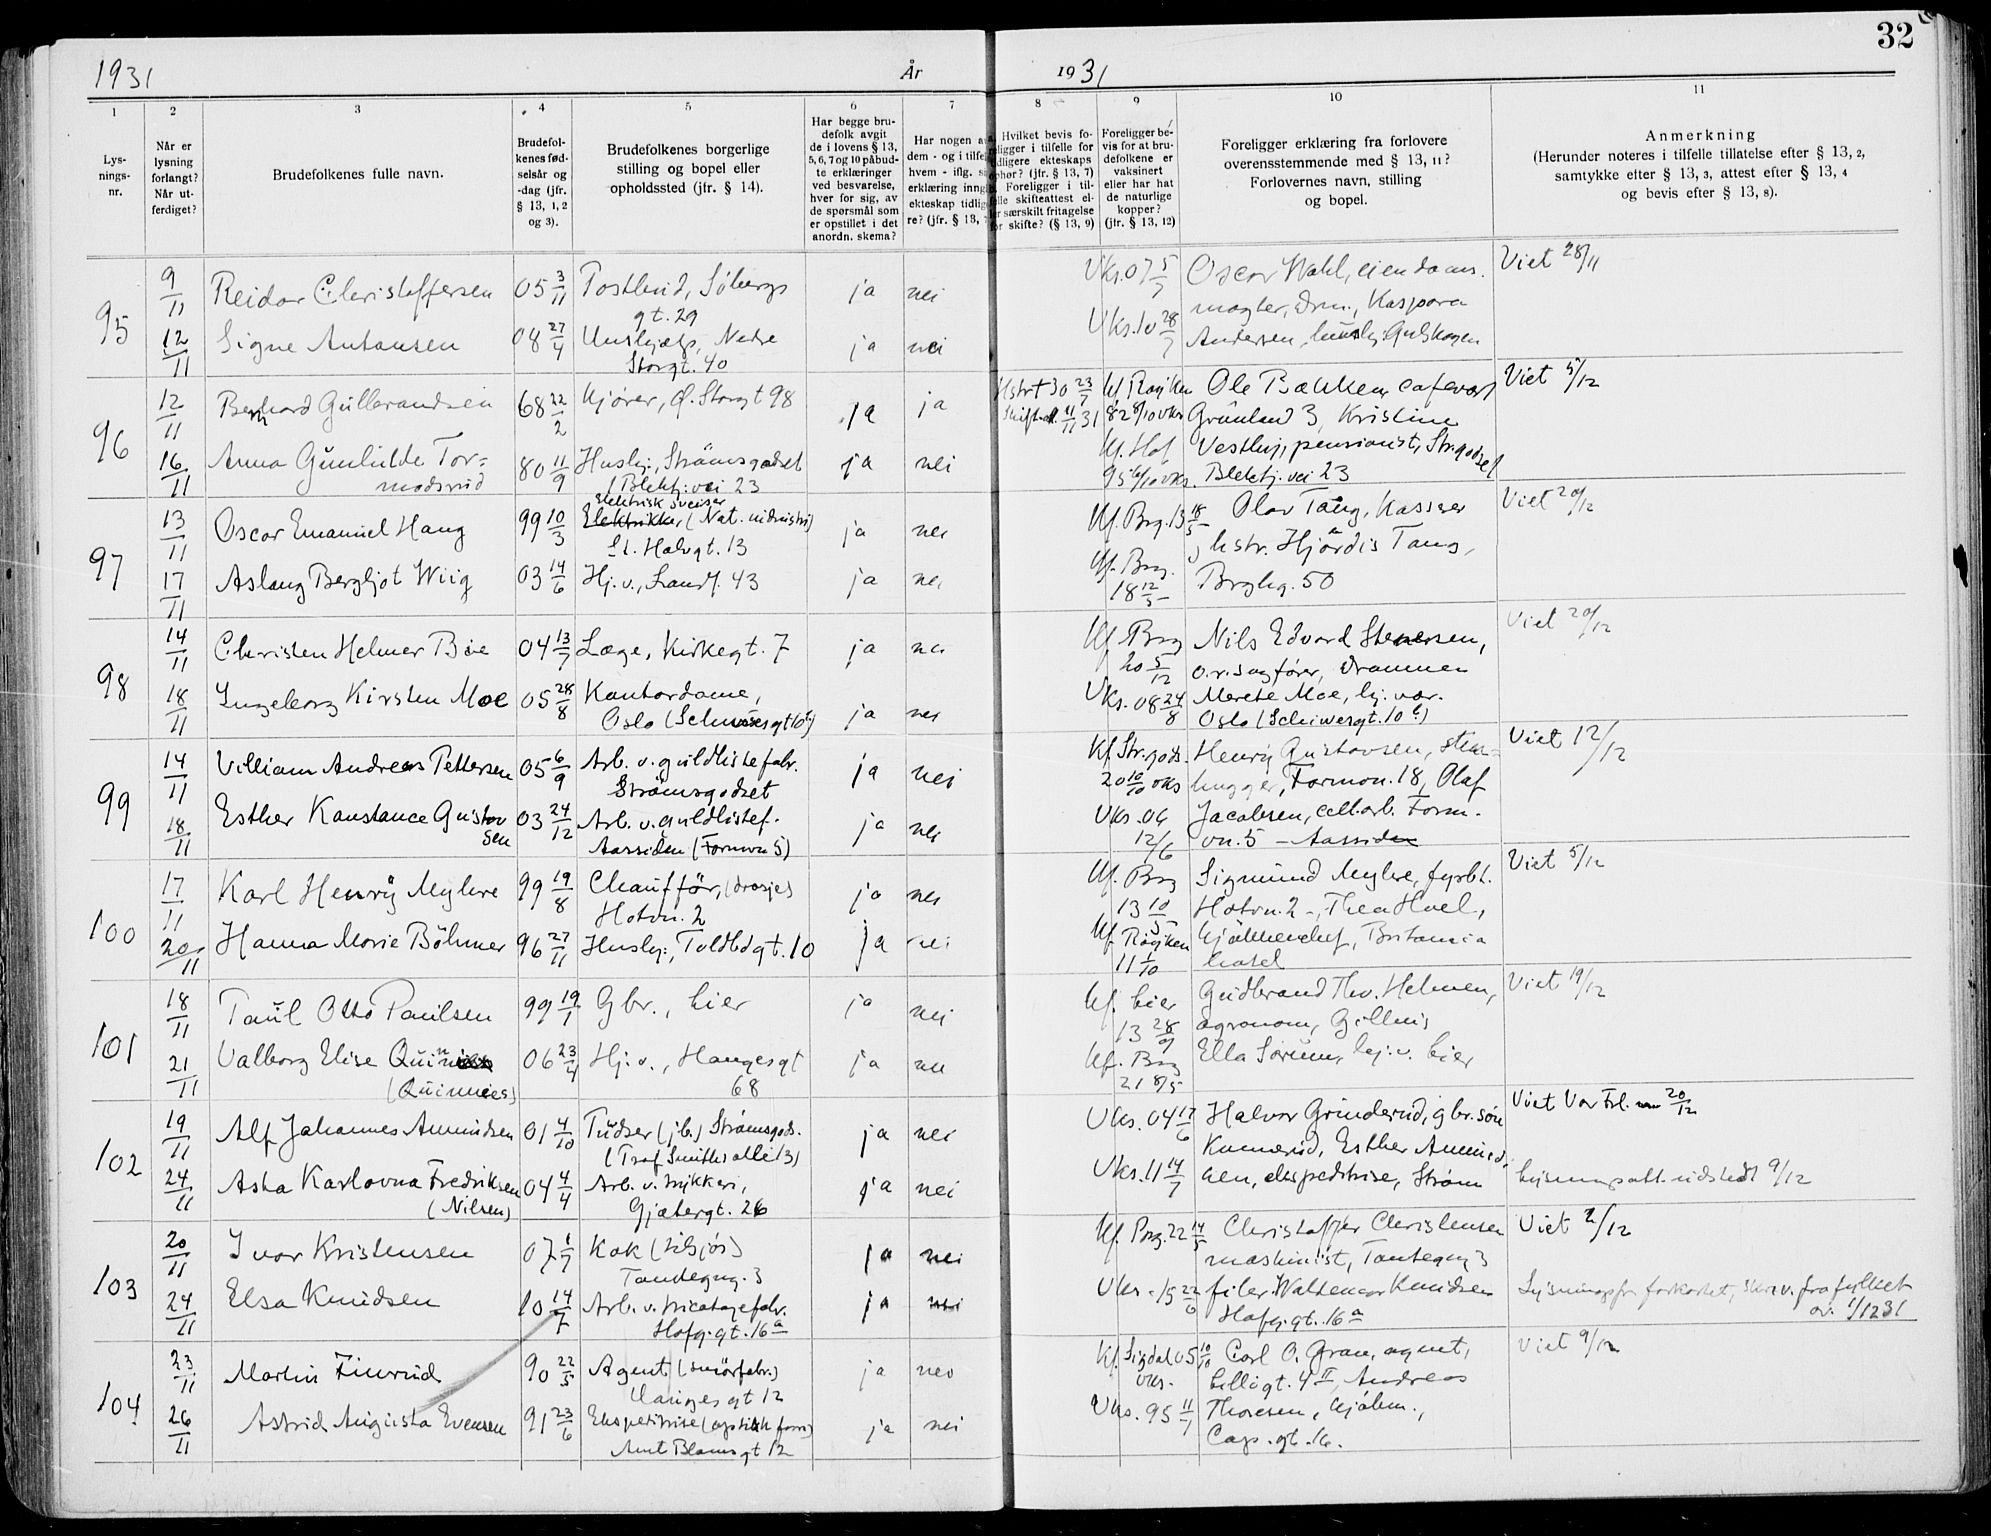 32
1931
År
1931
1
2
3
4
5
6
7
8
9
10
11
Lys-
nings-
nr.
Når er
lysning
forlangt?
Når ut-
ferdiget?
Brudefolkenes fulle navn.
Brudefol-
kenes fød-
selsår og
-dag (jfr.
§ 13, 1, 2
og 3).
Brudefolkenes borgerlige
stilling og bopel eller
opholdssted (jfr. § 14).
Har begge bru-
defolk avgit
de i lovens § 13,
5, 6, 7 og 10 påbud-
te erklæringer
ved besvarelse,
hver for sig, av
de spørsmål som
er opstillet i det
anordn. skema?
Har nogen a
dem - og i tilfe
hvem - iflg. s
erklæring inng
ekteskap tidlig
re? (jfr. § 13,
Hvilket bevis fo-
religger i tilfelle for
tidligere ekteskaps
ophør? (jfr. § 13, 7)
Foreligger i til-
felle skifteattest el-
ler særskilt fritagelse
for skifte? (§ 13, 9)
Foreligger be-
vis for at bru-
defolkene er
vaksinert
eller har hat
de naturlige
kopper?
(jfr. § 13, 12)
Foreligger erklæring fra forlovere
overensstemmende med § 13, 11?
Forlovernes navn, stilling
og bopel.
Anmerkning
(Herunder noteres i tilfelle tillatelse efter § 13, 2,
samtykke efter § 13, 3, attest efter § 13, 4
og bevis efter § 13, 8).
95
9/11 Reidar Christoffersen 05 3/11 Postbud, Söbergs ja nei Vks. 07 5/7 Oscar Wahl, eiendoms. Viet 28/11
gt. 29
12/11 Signe Antonsen 08 27/4 Hushjælp, Nedre ja nei Vks. 10 28/7 Andersen, Gulskogen
Storgt. 40
96
12/11 Bernhard Gulbrandsen 68 22/2 Kjører, Ö. Storgt 98 ja ja 30 23/7 Kf Røyken Ole Bakken cafevært Viet 5/12
11/11 31 82 Grønland 3, Kristine
16/11 Anna Gunhilde Tor= 80 11/9 Husbj., Strömsgodset ja nei Kf. Hof Vestby, pensionist, Str.godset
modsrud (Blektj. vei 23 95 Blektj. vei 23
97
Elektrisk sveiser
13/11 Oscar Emanuel Haug 99 10/3 Elektriker ja nei Kf. Brg. 13 18/5 Olav Tang, Kasserer Viet 20/12
St. Halvgt. 13 hstr. Hjördis Tang,
17/11 Aslaug Bergljot Wiig 03 14/6 Hj. v., Landf. 43 ja nei Kf. Brg. 18 12/5 Brghg. 50
98
14/11 Christen Helmer Bøe 04 13/7 Læge, Kirkegt. 7 ja nei Kf. Brg 20 5/12 Nils Edvard Stenersen, Viet 20/12
o.r.sagfører, Drammen
18/11 Ingeborg Kirsten Moe 05 28/8 Kontordame, ja nei Vks. 08 24/8 Merete Moe, hj. vær.
Oslo Oslo
99
14/11 Villiam Andreas Pettersen 05 6/9 Arb. v. guldlistefabr. ja nei Kf. Str.gods. Henry Gustavsen, sten- Viet 12/12
Strömsgodset 20 10/10 vks hugger, Formon. 18, Olaf
18/11 Esther Konstance Gustav 03 24/12 Arb. v. guldlistef. ja nei Vks. 06 Jacobsen, cell.arb. Form-
sen Aassiden (Formon 5) 12/6 on. 5 - Aassiden
100
17/11 Karl Henry Myhre 99 19/8 Chauffør, (drosje) ja nei Kf. Brg Sigmund Myhre, fyrbt. Viet 5/12
Hotvn. 2 13 10/5 Hotvn. 2 -, Thea Hoel,
20/11 Hanna Marie Böhmer 96 27/11 Husbj., Toldbdgt. 10 ja nei Kf. Røyken kjökkenchef, Britania
11 1/10 hotel
101
18/11 Paul Otto Paulsen 99 19/1 Gbr., Lier ja nei Kf. Lier Gudbrand Thv. Helmen, Viet 19/12
13 28/9 agronom,
21/11 Valborg Elise 06 23/4 Hj. v., Haugesgt ja nei Kf. Brg Ella Sørum, hj. v. Lier
68 21 8/5
102
19/11 Alf Johannes Amundsen 01 4/10 Pudser (jb.) Strømsgods. ja nei Vks. 04 17/6 Halvor Grinderud, gbr.søn Viet Vor Frl. 20/12
(Prof Smiths alle 13) Esther Amund-
24/11 Asta Karlovna Fredriksen 04 4/4 Arb. v. trykkeri, ja nei Vks. 11 14/7 sen, ekspeditrise, Strøm Lysningsatt. utstedt 9/12
(Nilsen) Gjætergt. 26
103
20/11 Ivar Kristensen 07 1/7 Kok (tilsjøs) ja nei Kf. Brg. 22 14/5 Christoffer Christensen Viet 2/12
Tandegng. 3 maskinist, Tandegng 3
24/11 Elsa Knudsen 10 14/7 Arb. v. tricotagefabr. ja nei Vks. 15 22/6 filer. Waldemar Knudsen Lysningsfr. forkortet, skriv. fra fylket
Hofg. gt. 16a Hafg. gt. 16a av. 1/12 31
104
23/11 Martin Finrud 90 22/5 Agent (smørfabr.) ja nei Kf. Sigdal 05 10/10 Carl O. Gran, agent, Viet 9/12
Hauges gt 12 vks. gt. 4 II, Andreas
26/11 Astrid Augusta Evensen 91 23/6 Ekspeditrise ja nei Vks. 95 11/7 Thoresen, kjøbm.,
Amt Bloms gt 12 Cap. gt. 16.